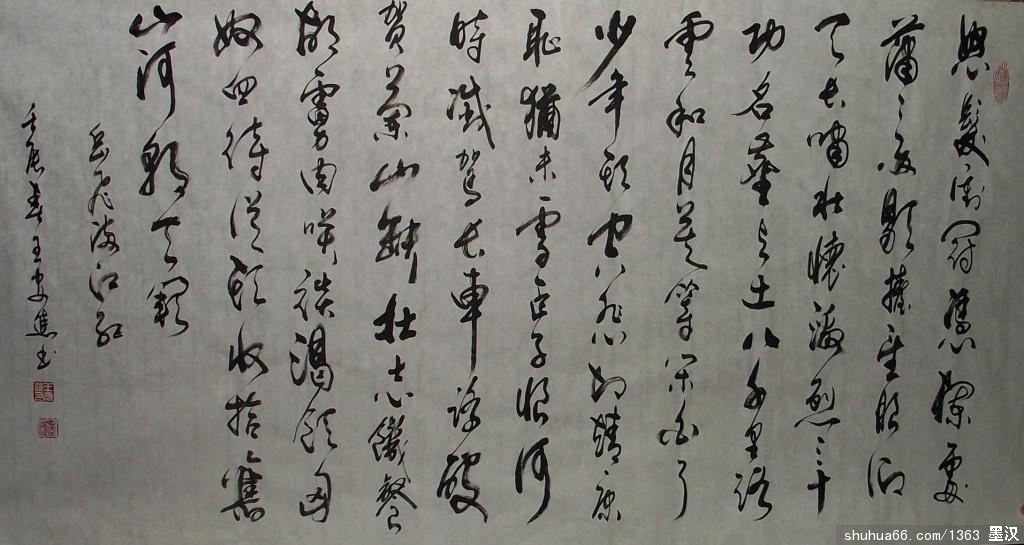 怒髮衝冠憑欄處
瀟瀟雨歇擡望眼仰
天長嘯壯懷激烈三十
功名塵與土八千里路
雲和月莫等閑白了
少年頭空悲切靖康
恥猶未雪臣子恨何
時滅駕長車踏破
賀蘭山缺壯志饑餐
胡虜肉笑談渴飲匈
奴血待從頭收拾舊
山河朝天闕
岳飛滿江紅
壬辰春王書
shuhua66.com/1363 墨汉